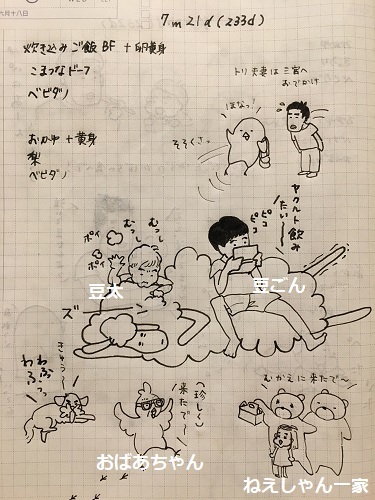 六月十八日
7m21d(233d)
炊き込みご飯BF+卵黄身
こまつなドーフ
ベビダノ
おかゆ+黄身
梨
ベビダノ
トリ夫妻は三宮へ
おでかけ
ほなっ!
そそくさっ
ヤクルト飲み
たい〜
ピコ
ピコ
むっし
むっし
ポイ
ポイ
豆太
豆ごん
ズ
きゅう〜
わふっ
わふっ
(珍しく)
来たで〜
おばあちゃん
むかえに来たで〜
ねえしゃん一家